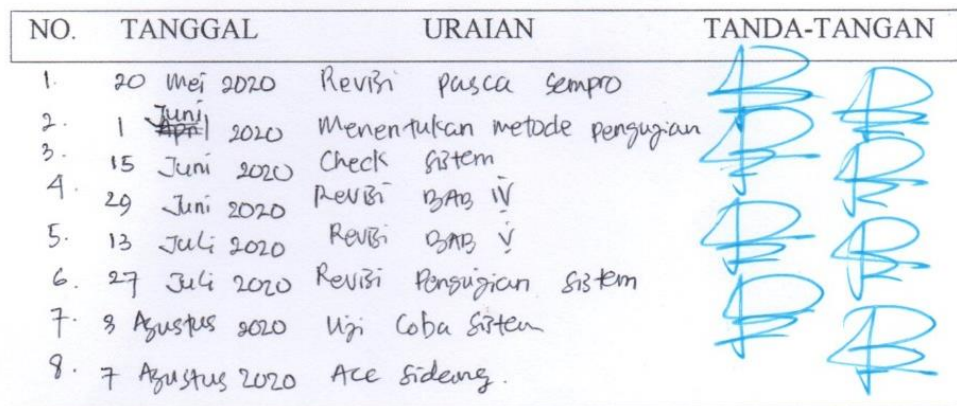 NO. TANGGAL URAIAN TANDA-TANGAN
1. 20 Mei 2020 Revisi pasca sempro
2. 1 Juni April 2020 Menentukan metode pengujian
3. 15 Juni 2020 Check sistem
4. 29 Juni 2020 Revisi BAB IV
5. 13 Juli 2020 Revisi BAB V
6. 27 Juli 2020 Revisi Pengujian sistem
7. 3 Agustus 2020 Uji Coba Sistem
8. 7 Agustus 2020 Acc Sidang.